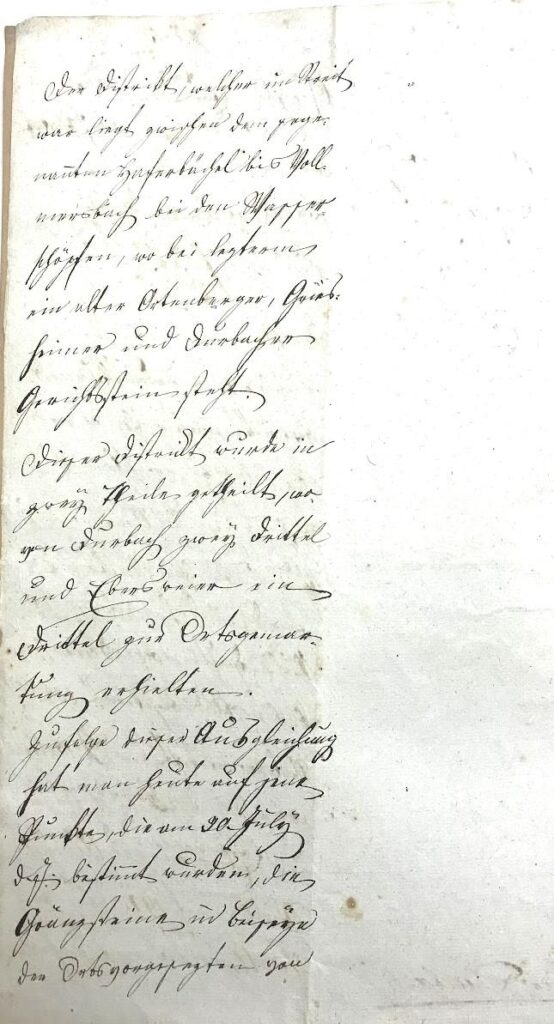 Der District, welcher im Streit
war liegt zwischen dem soge-
nannten Haferbächel bis Voll-
mersbach bei den Wasser-
schöpfen, wo bei letzterm
ein alter Ortenberger, Gries-
heimer und Durbacher
Gerichtsstein steht.
Dieser District wurde in
zwey Theile getheilt, wo
von Durbach zwey Drittel
und Ebersweier ein
Drittel zur Ortsgemar-
kung erhielten.
Zufolge dieser Ausgleichung
hat man heute auf jene
Punkte, die am 20. July
d. J. bestimmt wurden, die
Gränzsteine in Beiseye
der Ortsvorgesetzten von